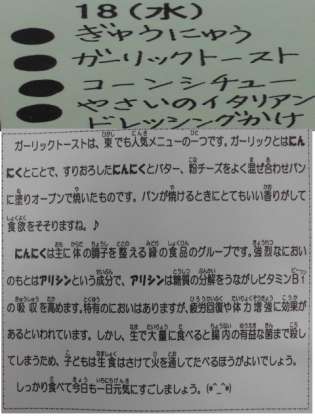 18(水)
ぎゅうにゅう
ガーリックトースト
コーンシチュー
やさいのイタリアン
ドレッシングかけ
ガーリックトーストは、東でも人気メニューの一つです。ガーリックとはにん
にくとことで、すりおろしたにんにくとバター、粉チーズをよく混ぜ合わせパン
に塗りオーブンで焼いたものです。パンが焼けるときにとてもいい香りがして
食欲をそそりますね。♪
にんにくは主に体の調子を整える緑の食品のグループです。強烈なにおい
のもとはアリシンという成分で、アリシンは糖質の分解をうながしビタミンB1
の吸収を高めます。特有のにおいはありますが、疲労回復や体力増強に効果が
あるといわれています。しかし、生で大量に食べると腸内の有益な菌まで殺し
てしまうため、子どもは生食はさけて火を通してたべるほうがよいでしょう。
しっかり食べて今日も一日元気にすごしましょう。(*^_^*)